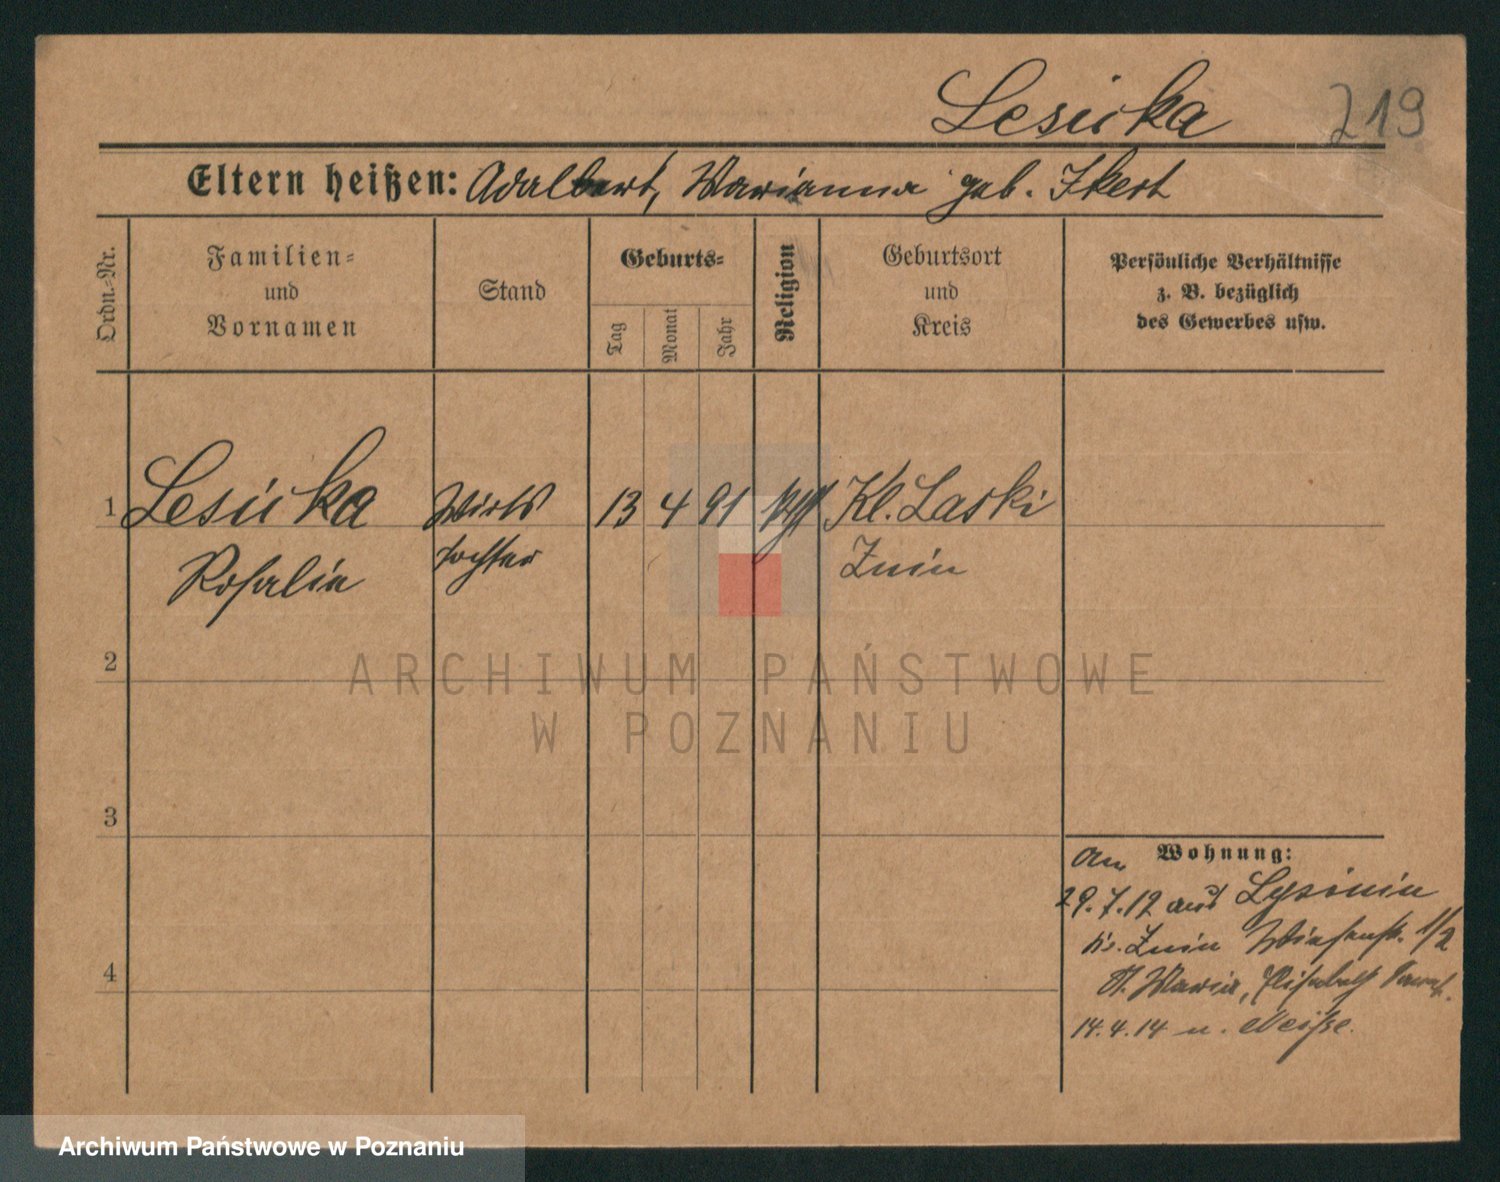 Lesicka 219
Eltern heißen: Adalbert, Marianna geb. Ikert
Ordn.-Nr.
Familien-
und
Vornamen
Stand
Geburts-
Tag
Monat
Jahr
Religion
Geburtsort
und
Kreis
Persönliche Verhältnisse
z. B. bezüglich
des Gewerbes usw.
1 Lesicka Wirts 13 4 91 Kl. Laski
Rosalie tochter Znin
2
ARCHIWUM PAŃSTWOWE
W POZNANIU
3
Wohnung:
am
29.7.12 aus Lysinin
Kr. Znin Wiesenstr. 1/2
St. Maria, Elisabeth
14.4.14 n. Neisse.
4
Archiwum Państwowe w Poznaniu